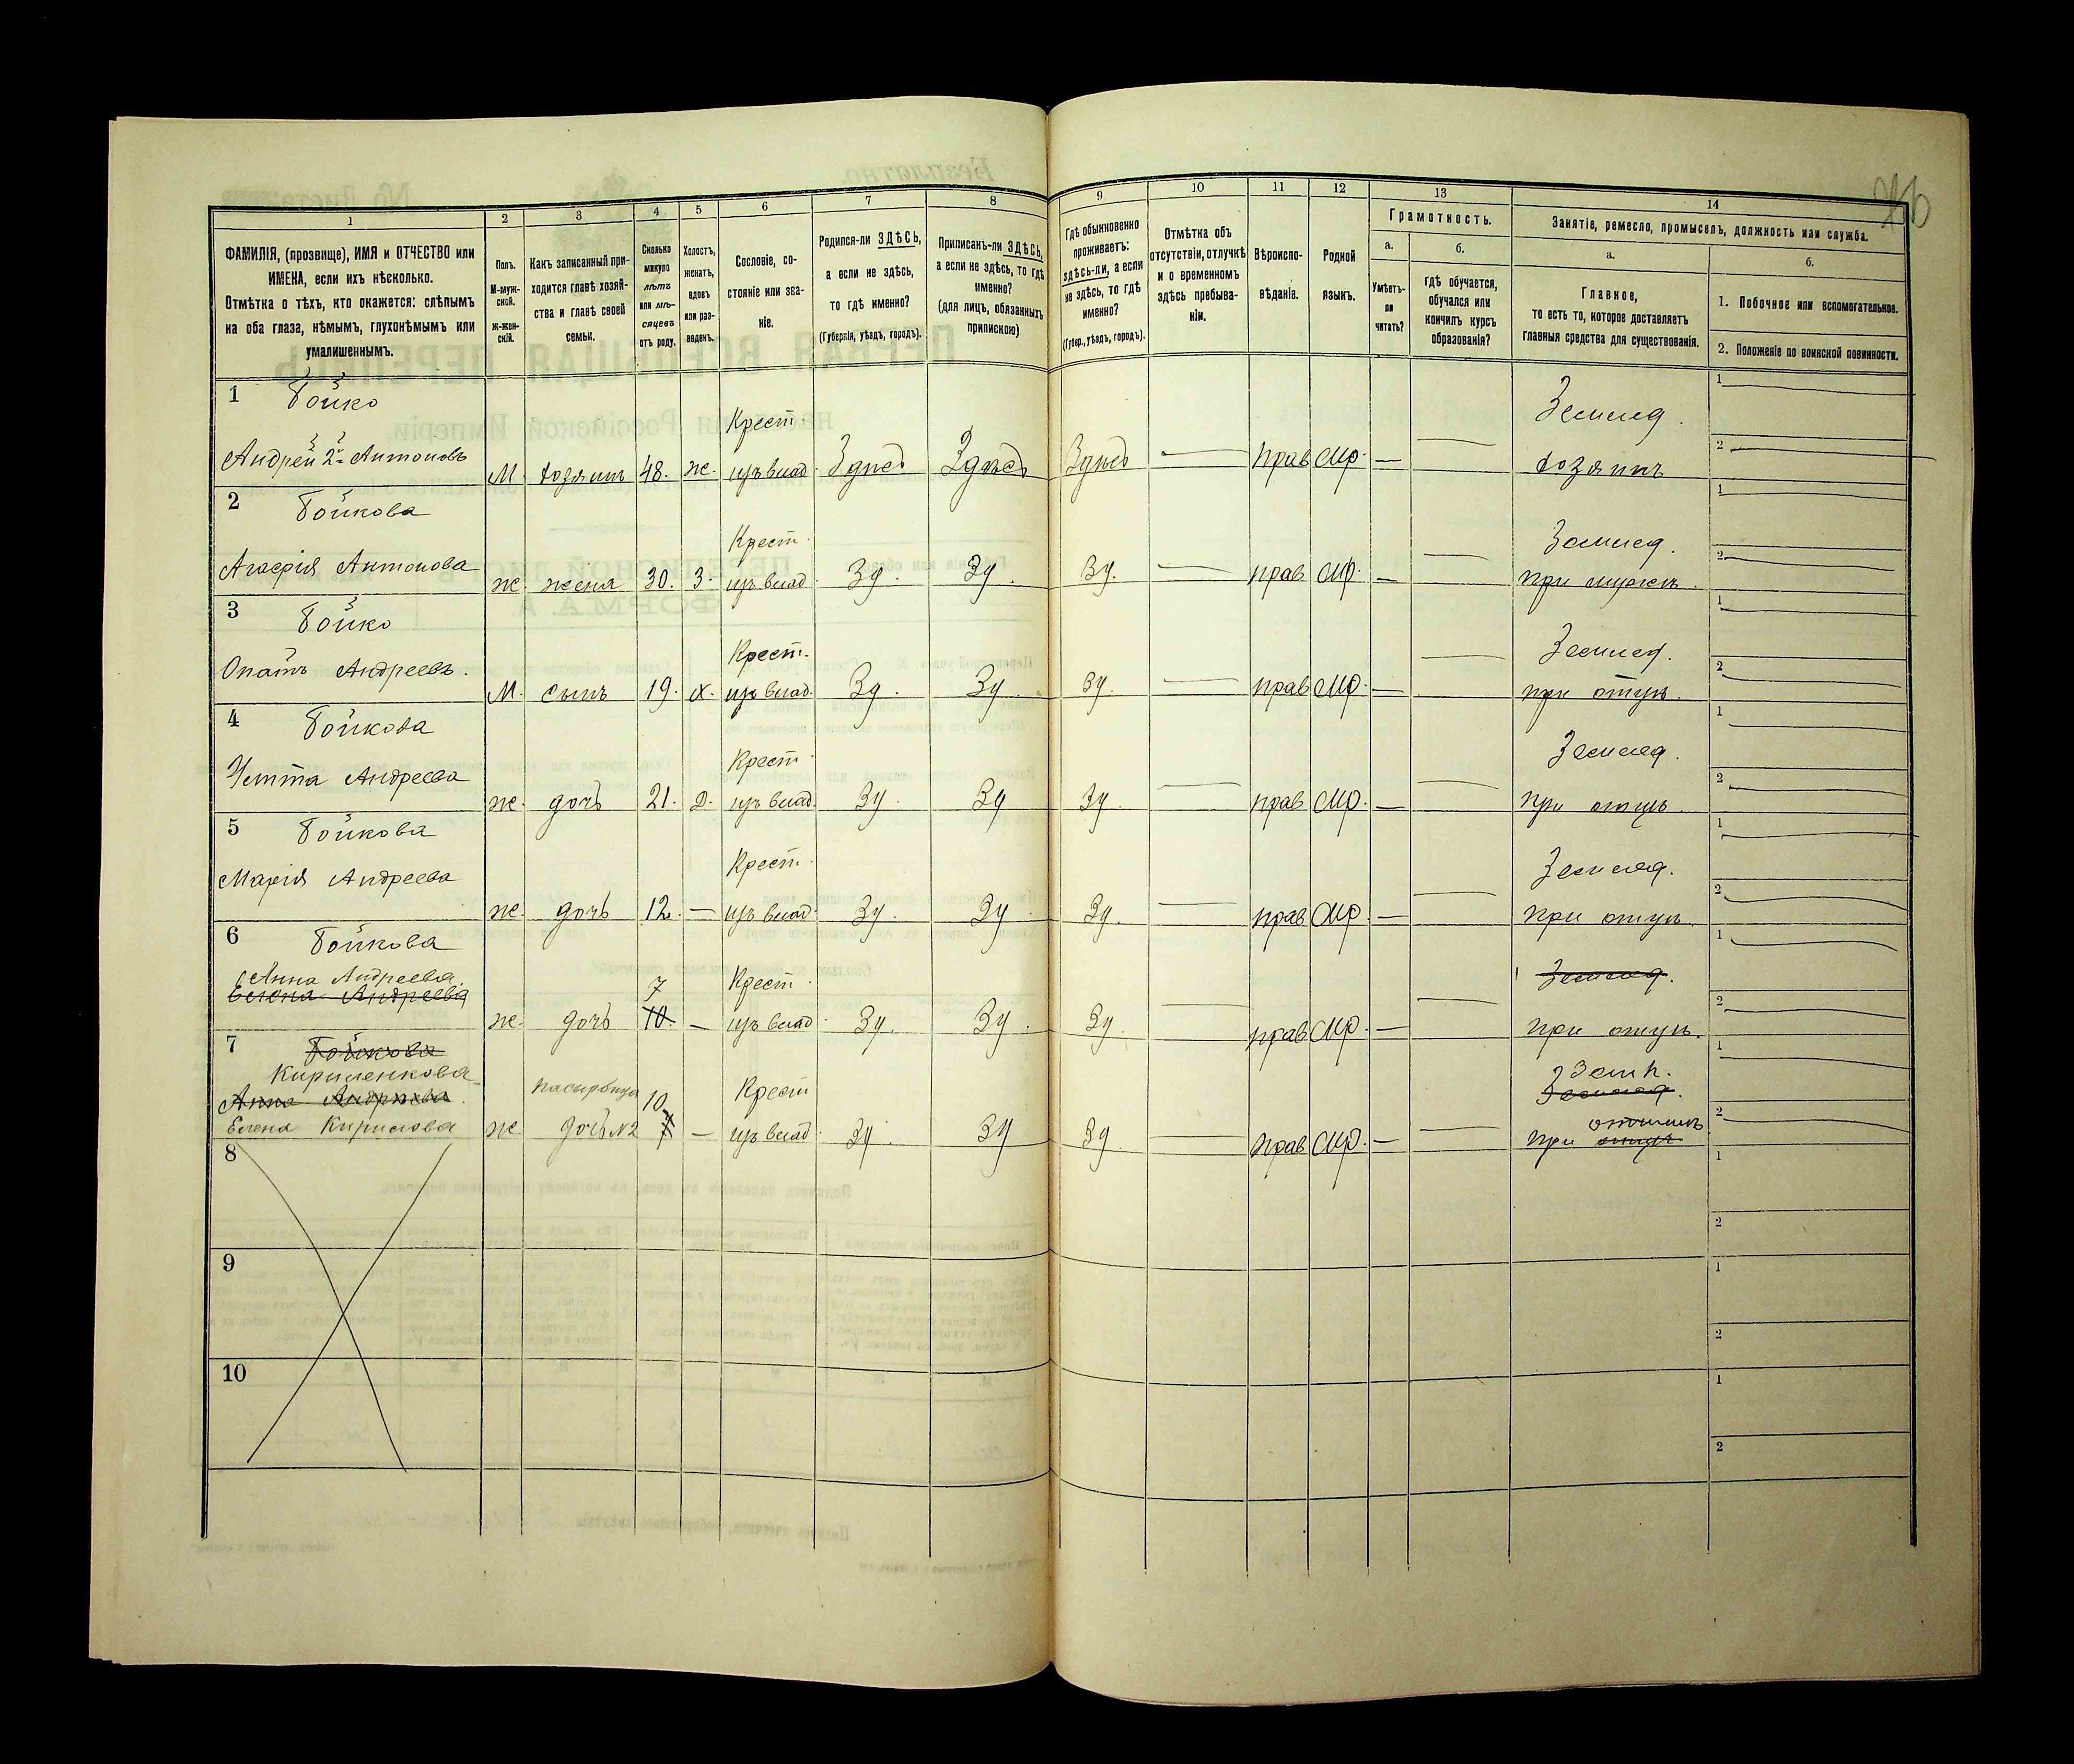 1 2 3 4 5 6 7 8 9 10 11 12 13 14
ФАМИЛІЯ, (прозвище), ИМЯ и ОТЧЕСТВО или ИМЕНА, если ихъ нѣсколько.
Отмѣтка о тѣхъ, кто окажется: слѣпымъ на оба глаза, нѣмымъ, глухонѣмымъ или умалишеннымъ.
Полъ.
М-муж-
ской.
Ж-жен-
скій.
Какъ записанный при-
ходится главѣ хозяй-
ства и главѣ своей
семьи.
Сколько
минуло
лѣтъ
или мѣ-
сяцевъ
отъ роду.
Холостъ,
женатъ,
вдовъ
или раз-
веденъ.
Сословіе, со-
стояніе или зва-
ніе.
Родился-ли ЗДѢСЬ,
а если не здѣсь,
то гдѣ именно?
(Губернія, уѣздъ, городъ).
Приписанъ-ли ЗДѢСЬ,
а если не здѣсь, то гдѣ
именно?
(для лицъ, обязанныхъ
припискою)
Гдѣ обыкновенно
проживаетъ:
здѣсь-ли, а если
не здѣсь, то гдѣ
именно?
(Губер., уѣздъ, городъ).
Отмѣтка объ
отсутствіи, отлучкѣ
и о временномъ
здѣсь пребыва-
ніи.
Вѣроиспо-
вѣданіе.
Родной
языкъ.
Грамотность.
а.
Умѣетъ-
ли
читать?
б.
гдѣ обучается,
обучался или
кончилъ курсъ
образованія?
Занятіе, ремесло, промыселъ, должность или служба.
а.
Главное,
то есть то, которое доставляетъ
главныя средства для существованія.
б.
1. Побочное или вспомогательное.
2. Положеніе по воинской повинности.
1 Бойко Крест. Землед. 1
Андрей 2й Антоновъ М. хозяинъ 48. ж. изъ влад. Здѣсь Здѣсь Здѣсь — прав мр. — — хозяинъ 2
2 Бойкова Крест. Землед. 1
Антонова ж. жена 30. З. изъ влад. Зд. Зд. Зд. — прав мр. — — при мужѣ. 2
3 Бойко Крест. Землед. 1
Андреевъ. М. сынъ 19. х. изъ влад. Зд. Зд. Зд. — прав мр. — — при отцѣ. 2
4 Бойкова Крест. Землед. 1
Андреева ж. дочь 21. Д. изъ влад. Зд. Зд Зд. — прав мр. — — при отцѣ. 2
5 Бойкова Крест. Землед. 1
Марія Андреева ж. дочь 12. — изъ влад. Зд. Зд. Зд. — прав мр — — при отцѣ. 2
6 Бойкова 1
Анна Андреева 7 Крест. Землед.
Елена Андреева ж. дочь 10. — изъ влад. Зд. Зд. Зд. — прав мр. — — при отцѣ. 2
7 Бойкова 1
Кириленкова падчерица Крест Земл.
Анна Андреева. 10. Землед.
Елена Кирилова ж дочь №2 7 — изъ влад. Зд. Зд Зд. — прав мр. — — при отцѣ 2
8 1
2
9 1
2
10 1
2